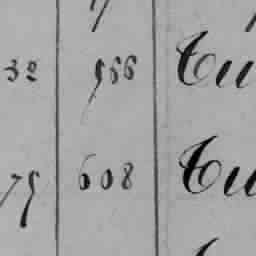 32 566 Cu
75 608 Cu